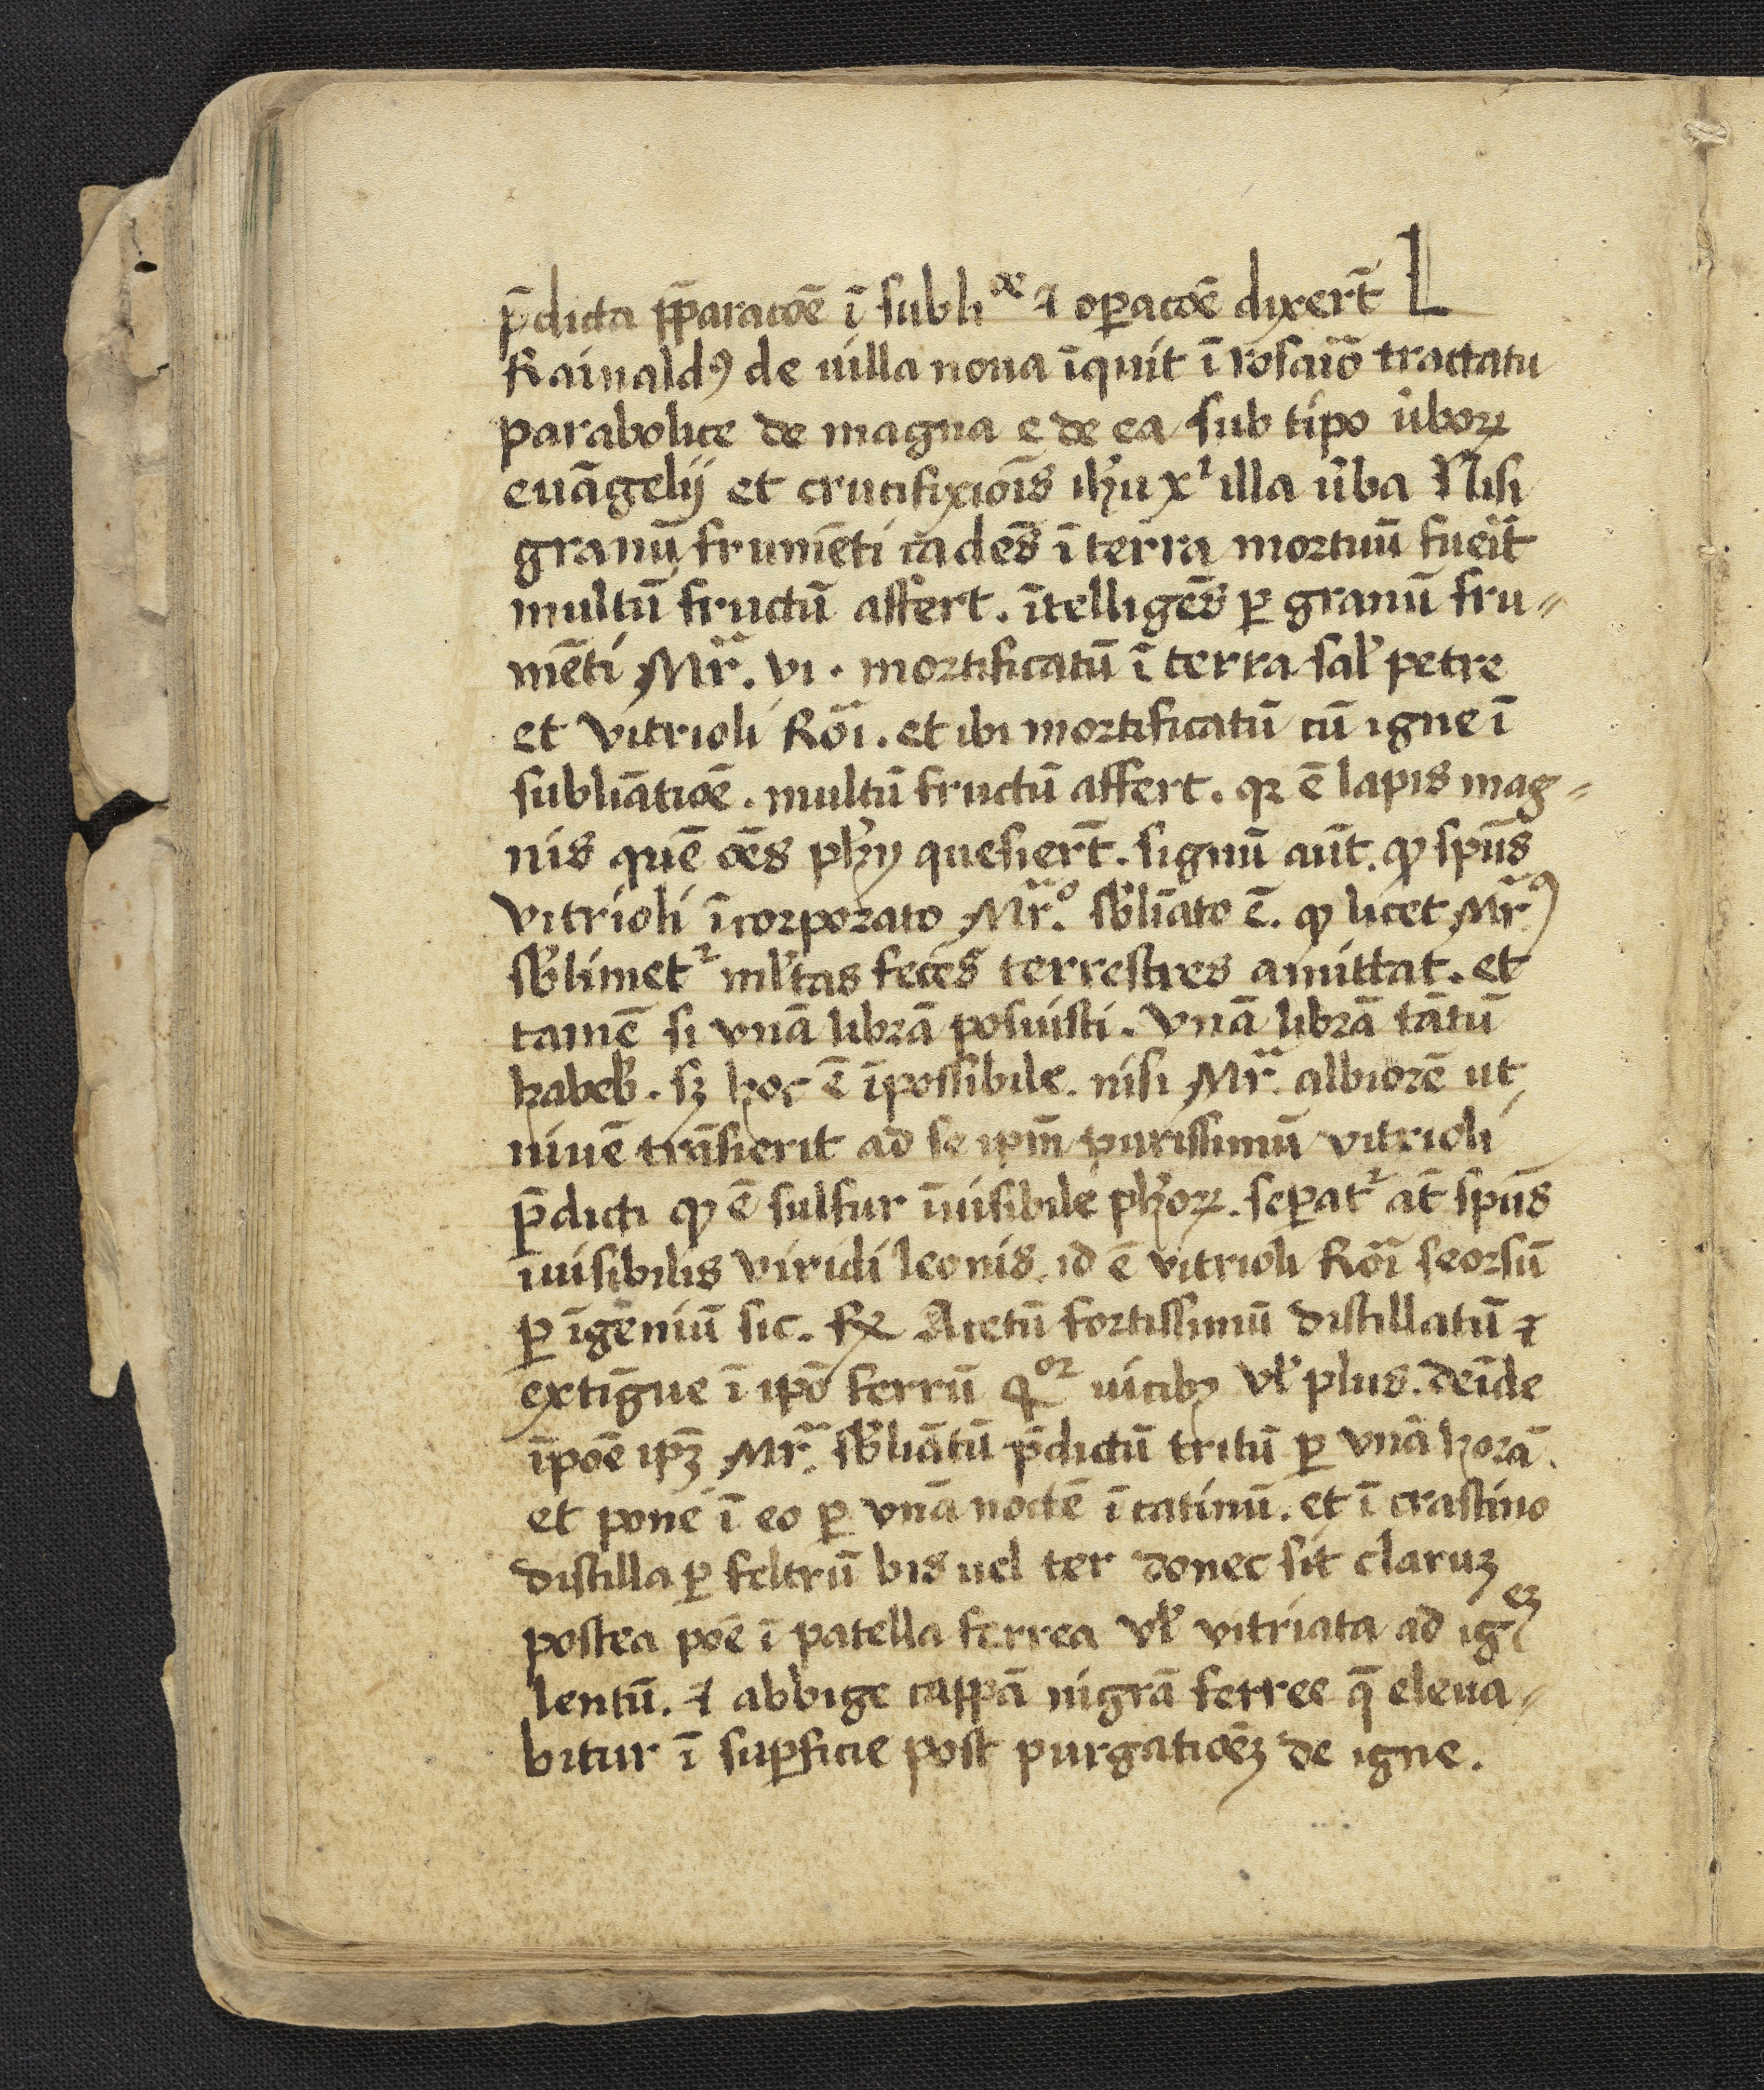 p̄dicta p̄paracōe ī subliōe ⁊ oꝑacōe dixert̄ L
Rainaldꝰ de uilla noua īquit ī rosaīo tractatu
parabolice de magna e de ea sub tipo ūboꝝ
euāgelij et crucifixiōis ihu xi illa ūba Nisi
granū frumēti cadēs ī terra mortuū fuēit
multū fructū affert. ītelligēs ꝑ granū fru-
mēti Mr̄. vi. mortificatū ī terra sal' petre
et vitrioli Rōi. et ibi mortificatū cū igne ī
subliātiōe. multū fructū affert. qꝛ ē lapis mag-
nis quē ōes phy quesiert̄. signū aūt. ꝙ spūs
vitrioli īcorporato Mr̄o sb'liāto ē. ꝙ licet Mr̄ꝰ
sb'limetᷣ ml'tas feces terrestres amittat. et
tamē si vnā librā posuisti. vnā librā tātū
habeb'. sꝫ hoc ē īpossibile. nisi Mr̄. albiorē ut
niuē trāsierit ad se ipm̄ purissimū vitrioli
p̄dicti ꝙ ē sulfur īuisibile ph'oꝝ. seꝑatᷣ āt spūs
īuisibilis viridi leonis. id ē vitrioli Rōi seorsū
ꝑ īgeniū sic. ℞ Acetū fortissimū distillatū ⁊
extīgue ī ipō ferrū qᵒꝛ uicibꝫ vl' plus. deīde
īpōe ipꝫ Mr̄. sb'liātū p̄dictū tritū ꝑ vnā horā.
et pone ī eo ꝑ vnā noctē ī catinū. et ī crastino
distilla ꝑ feltrū bis uel ter donec sit claruꝫ
postea pōe ī patella ferrea vl' vitriata ad igeꝫ
lentū. ⁊ abbige cappā nigrā ferree q̄ eleua-
bitur ī suꝑficie post purgatiōeꝫ de igne.